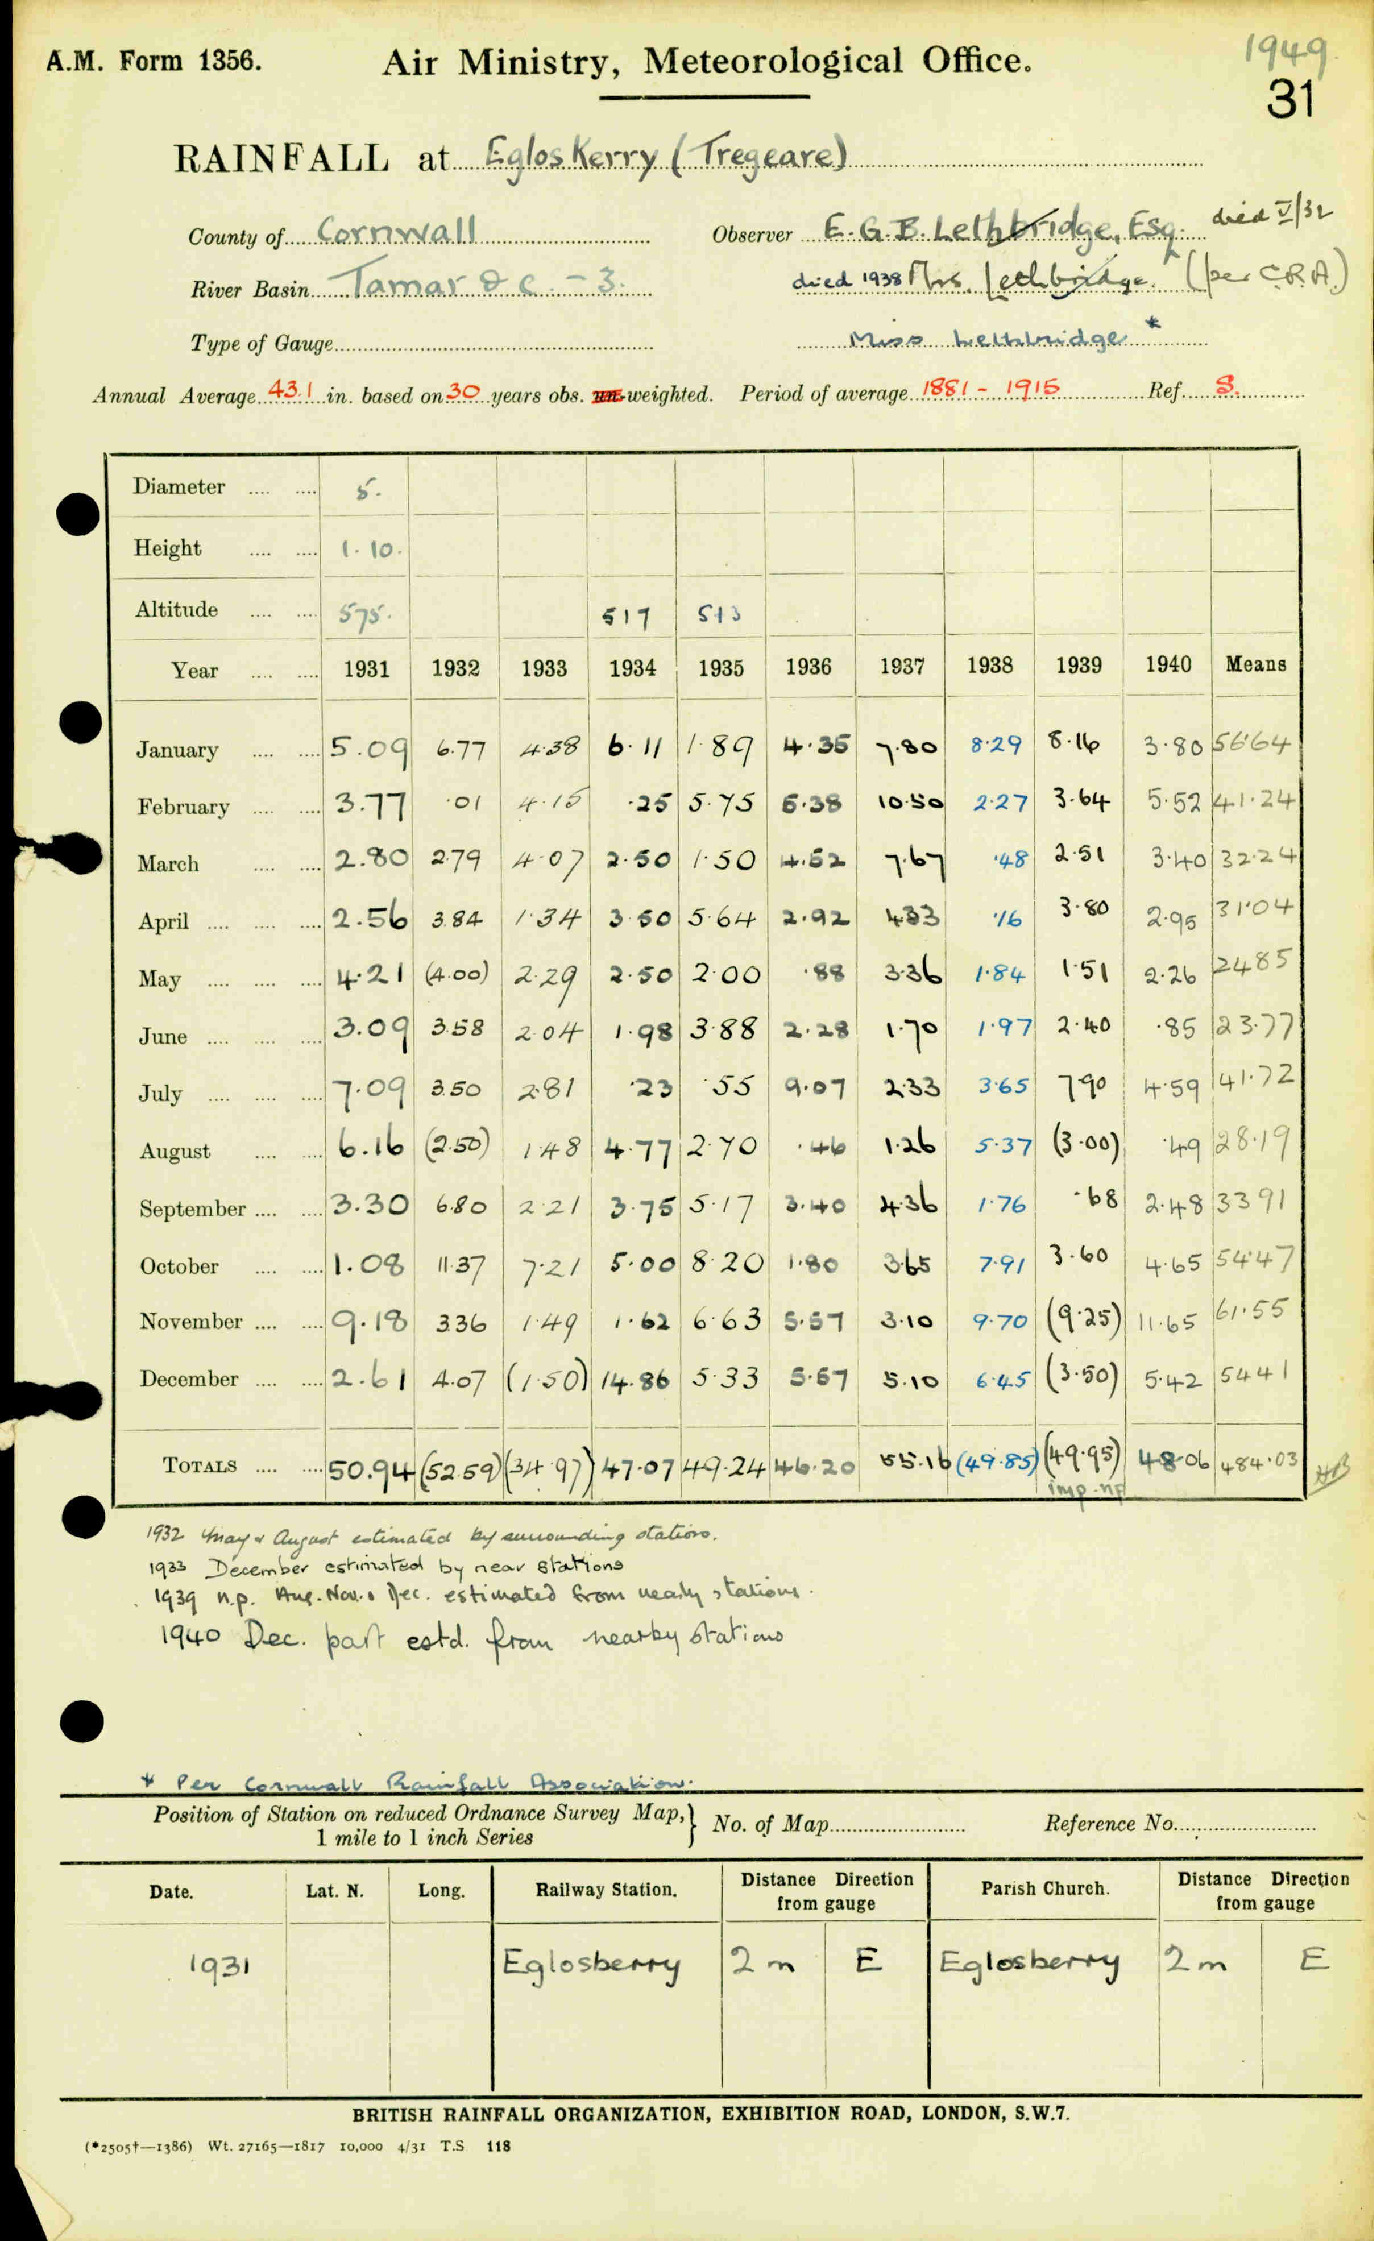 1949
A.M. Form 1356. Air Ministry, Meteorological Office.
31
RAINFALL at Egloskerry (Tregeare)
County of Cornwall Observer E.G.B. Lethbridge, Esq. died V/32
River Basin Tamar & c. - 3. died 1938 Mrs. Lethbridge (per C.R.A.)
Type of Gauge Miss Lethbridge *
Annual Average 43.1 in. based on 30 years obs. un-weighted. Period of average 1881 - 1915 Ref. S.
Diameter 5.
Height 1.10.
Altitude 575. 517 513
Year 1931 1932 1933 1934 1935 1936 1937 1938 1939 1940 Means
January 5.09 6.77 4.38 6.11 1.89 4.35 7.80 8.29 8.16 3.80 56.64
February 3.77 .01 4.15 .25 5.75 5.38 10.50 2.27 3.64 5.52 41.24
March 2.80 2.79 4.07 2.50 1.50 4.52 7.67 .48 2.51 3.40 32.24
April 2.56 3.84 1.34 3.50 5.64 2.92 4.33 .16 3.80 2.95 31.04
May 4.21 (4.00) 2.29 2.50 2.00 .88 3.36 1.84 1.51 2.26 24.85
June 3.09 3.58 2.04 1.98 3.88 2.28 1.70 1.97 2.40 .85 23.77
July 7.09 3.50 2.81 .23 .55 9.07 2.33 3.65 7.90 4.59 41.72
August 6.16 (2.50) 1.48 4.77 2.70 .46 1.26 5.37 (3.00) .49 28.19
September 3.30 6.80 2.21 3.75 5.17 3.40 4.36 1.76 .68 2.48 33.91
October 1.08 11.37 7.21 5.00 8.20 1.80 3.65 7.91 3.60 4.65 54.47
November 9.18 3.36 1.49 1.62 6.63 5.57 3.10 9.70 (9.25) 11.65 61.55
December 2.61 4.07 (1.50) 14.86 5.33 5.57 5.10 6.45 (3.50) 5.42 54.41
TOTALS 50.94 (52.59) (34.97) 47.07 49.24 46.20 55.16 (49.85) (49.95) 48.06 484.03
imp. np
1932 May & August estimated by surrounding stations.
1933 December estimated by near stations
1939 n.p. Aug. Nov. & Dec. estimated from nearby stations.
1940 Dec. part estd. from nearby stations
* Per Cornwall Rainfall Association.
Position of Station on reduced Ordnance Survey Map, 1 mile to 1 inch Series } No. of Map Reference No.
Date. Lat. N. Long. Railway Station. Distance Direction from gauge Parish Church. Distance Direction from gauge
1931 Eglosberry 2 m E Eglosberry 2 m E
BRITISH RAINFALL ORGANIZATION, EXHIBITION ROAD, LONDON, S.W.7.
(*2505†—1386) Wt. 27165—1817 10,000 4/31 T.S 118